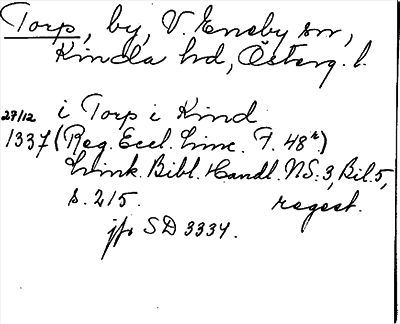 Torp, by, V. Eneby sn,
Kinda hd, Österg. l.
27/12 i Torp i Kind
1337 (Reg. Eccl. Linc. F. 48r.)
Link. Bibl. Handl. NS: 3, Bil. 5,
s. 215. regest.
jfr SD 3334.